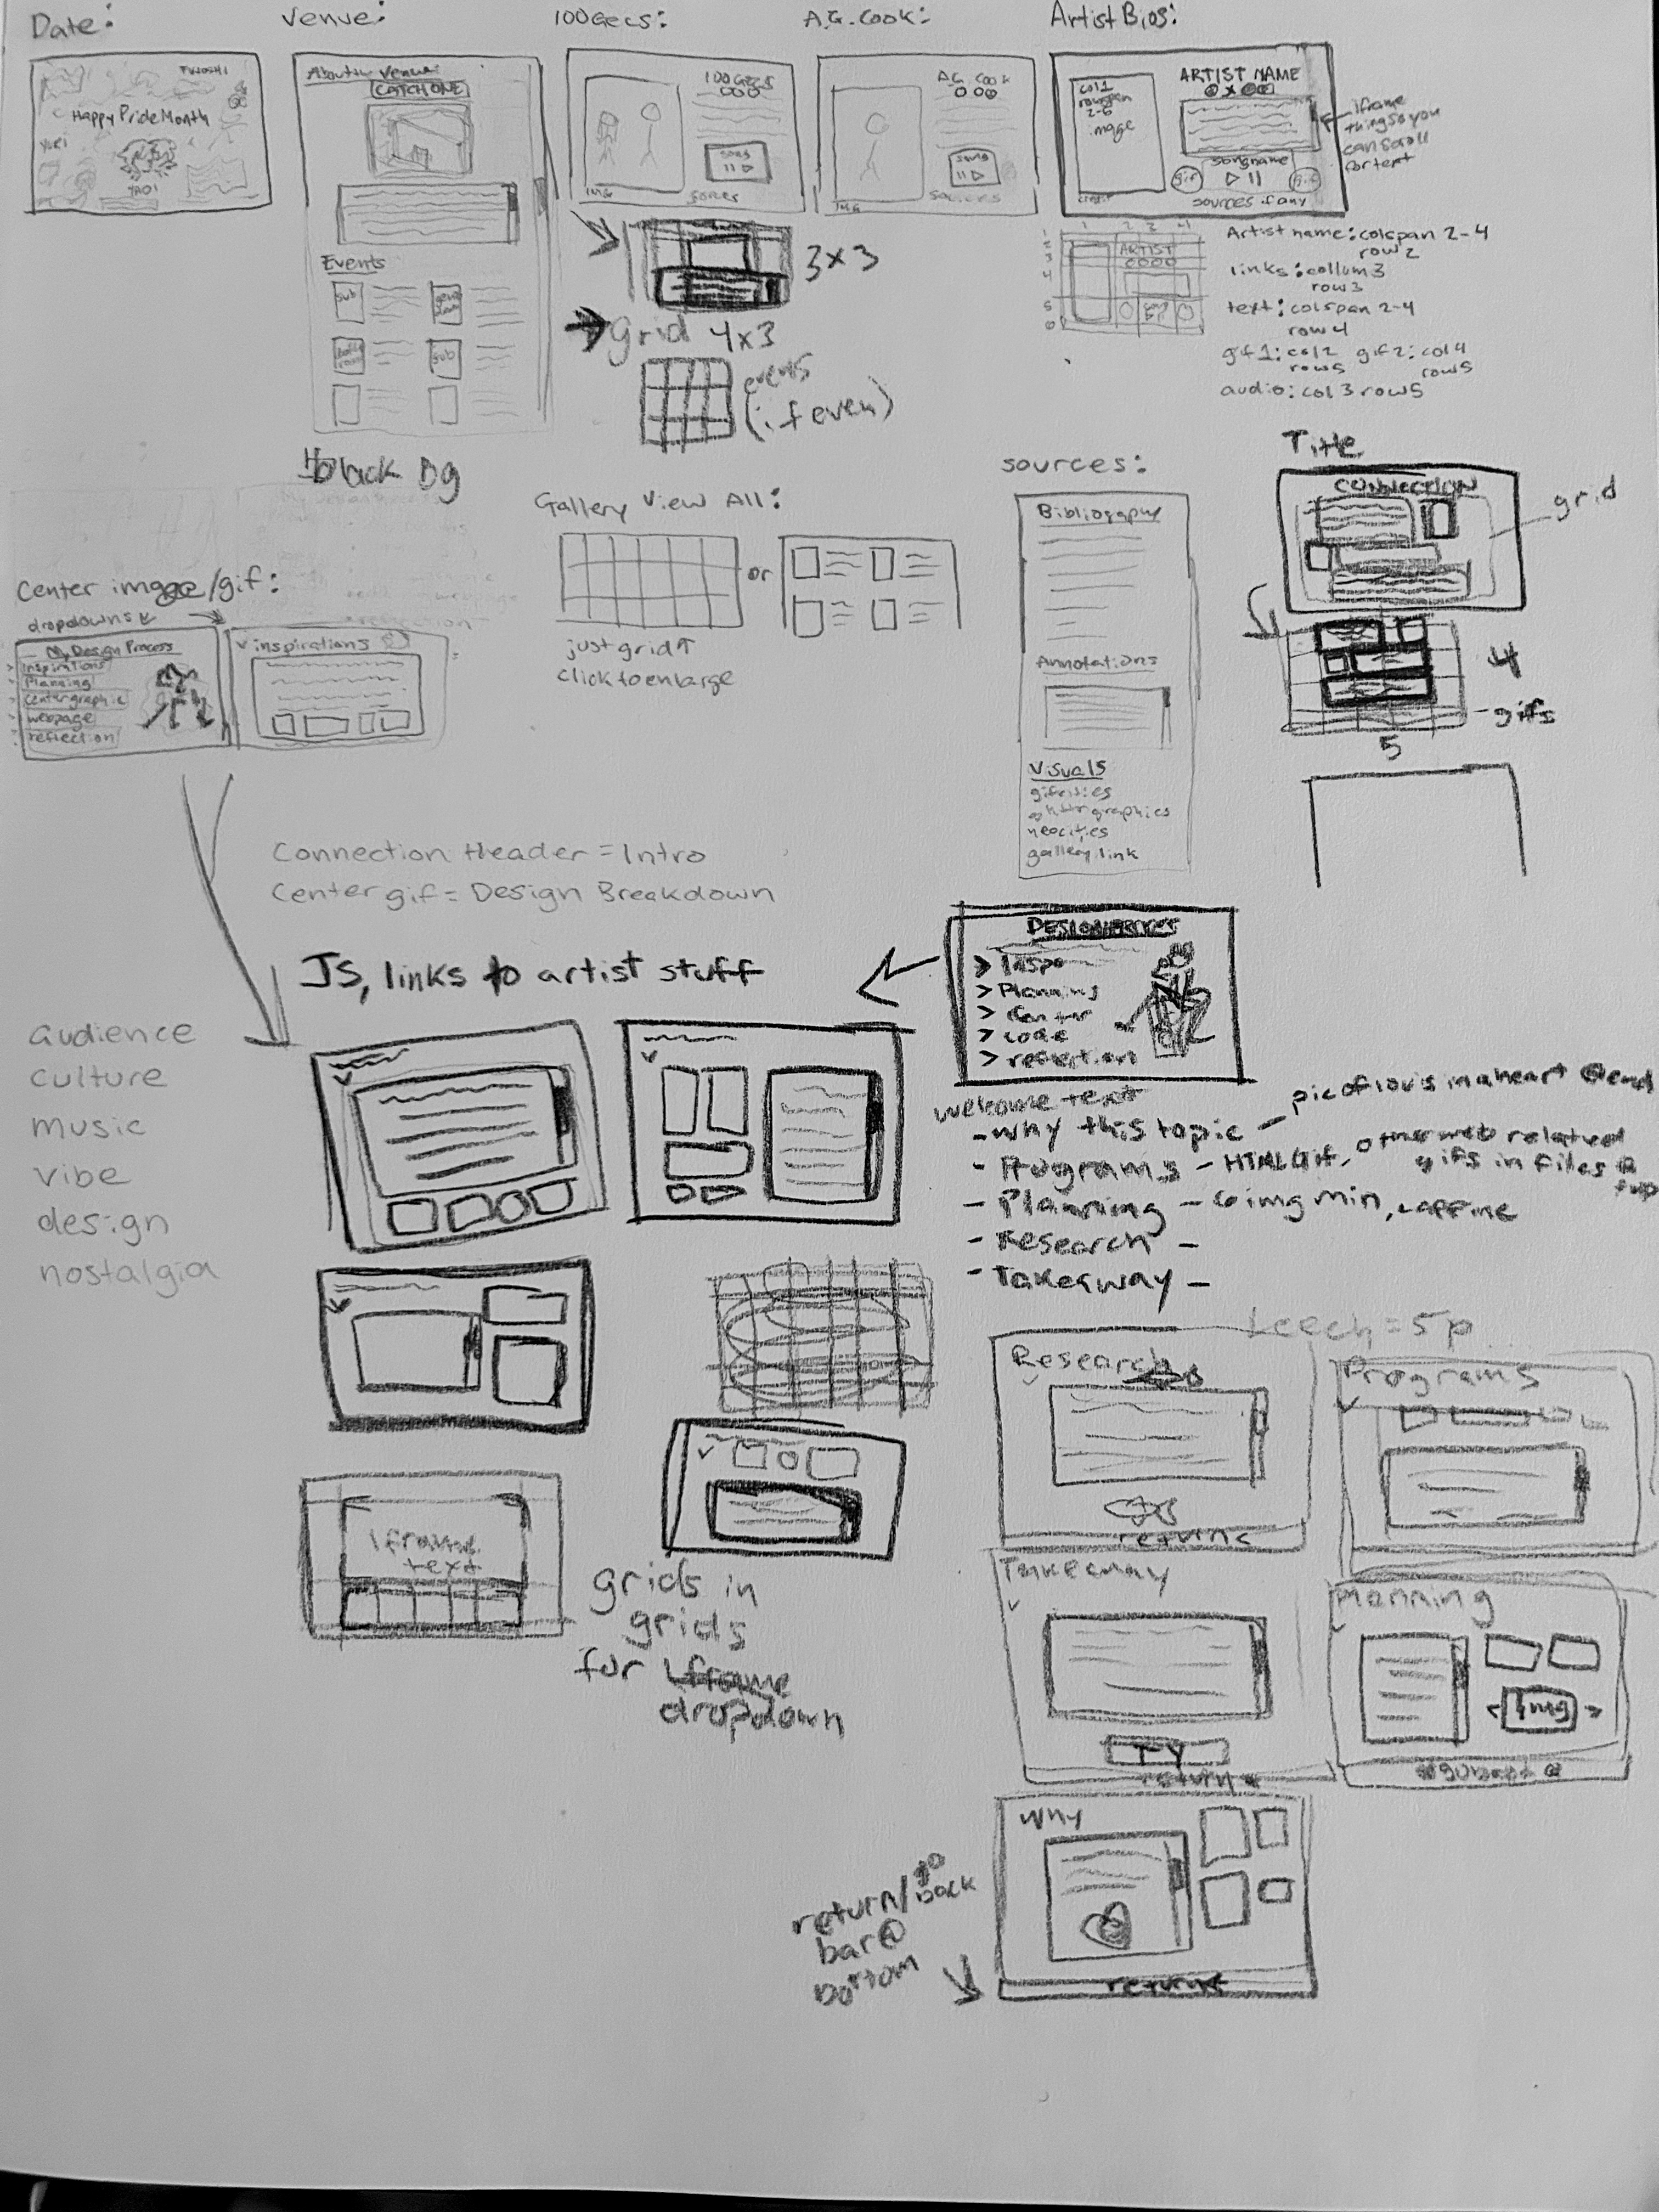 Date:
Venue:
100Gecs:
A.G. Cook:
Artist Bios:
Happy Pride Month
YURI
YAOI
About the Venue:
CATCH ONE
Events
sub
sub
black bg
100GECS
song
IMG
3x3
grid 4x3
events
(if even)
A.G. COOK
song
IMG
sources
col1
rowspan
2-6
image
ARTIST NAME
songname
gif
gif
credit
sources if any
iframe
thing so you
can scroll
for text
1 2 3 4
1
2
3
4
5
6
ARTIST
Artist name: colspan 2-4
row 2
links: collum 3
row 3
text: colspan 2-4
row 4
gif1: col2 gif2: col4
row5 row5
audio: col 3 row 5
Gallery View All:
or
just grid↑
click to enlarge
sources:
Bibliography
Annotations
Visuals
gifcities
neocities
gallery link
Title
CONNECTION
grid
4
gifs
5
Center image/gif:
dropdowns
My Design Process
> Inspirations
> Planning
> Centergraphic
> webpage
> reflection
v inspirations
Connection Header = Intro
Center gif = Design Breakdown
JS, links to artist stuff
audience
culture
music
vibe
design
nostalgia
> Inspo
> Planning
> Center
> code
> reflection
welcome text
- Why this topic - pic of lovis in a heart @ end
- Programs - HTML Gif, other web related
gifs in files @
top
- Planning - 6 img min,
- Research -
- Takeaway -
Leech = 5p
Research
return
Programs
Takeaway
TY
return
Planning
< img >
Why
return
return/go
back
bar @
bottom
iframe
text
grids in
grids
for iframe
dropdown